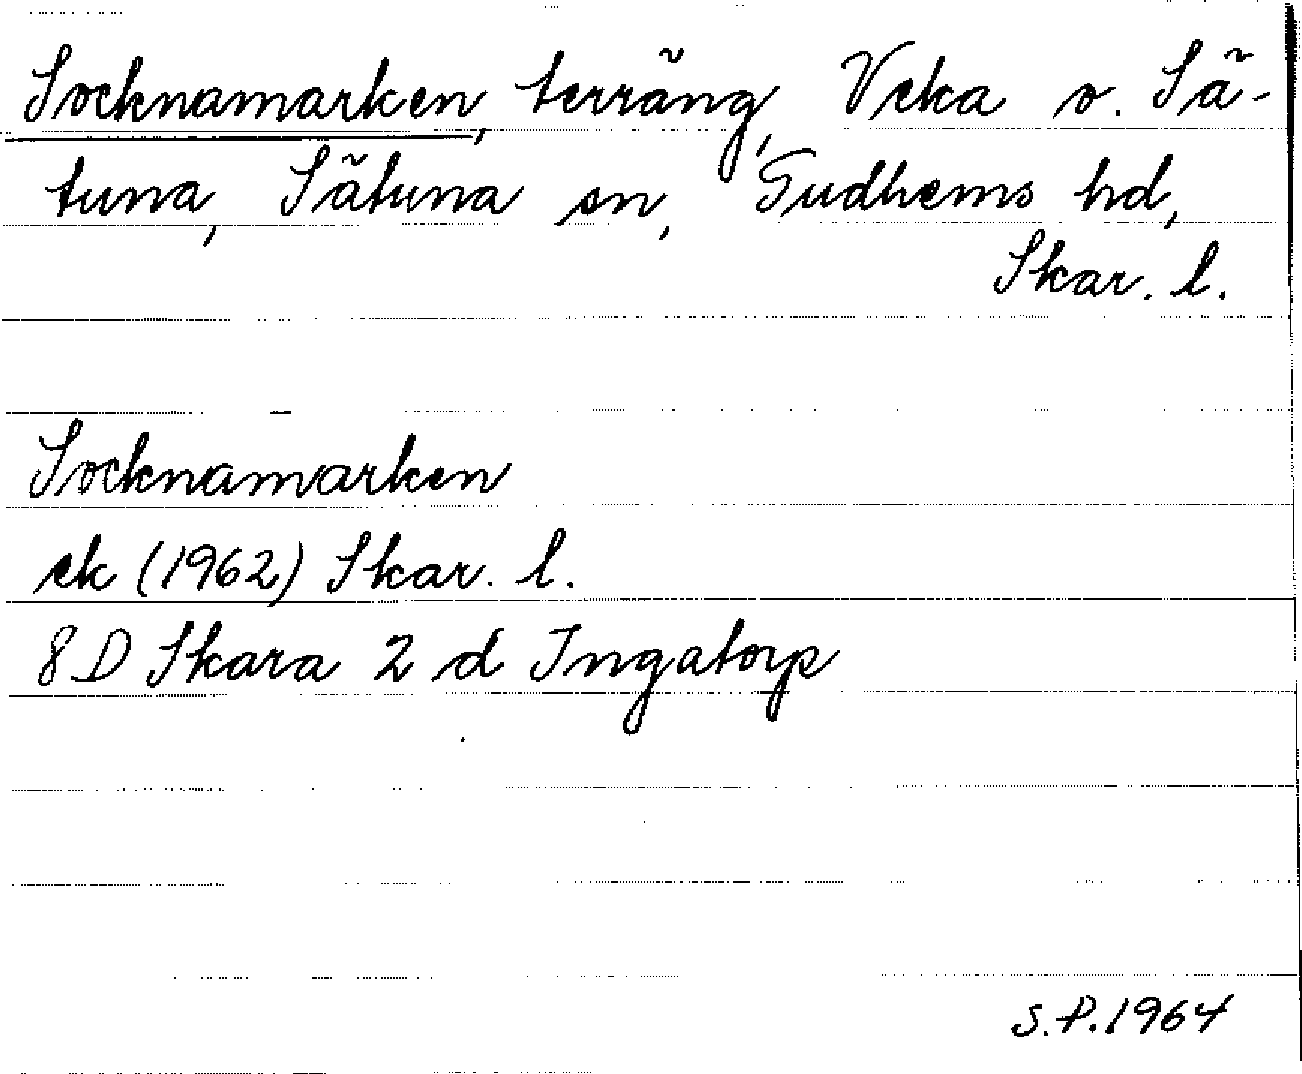 Socknamarken, terräng, Veka o. Sä-
tuna, Sätuna sn, Gudhems hd,
Skar. l.
Socknamarken
ek (1962) Skar. l.
8 D Skara 2 d Ingatorp
S.P. 1964